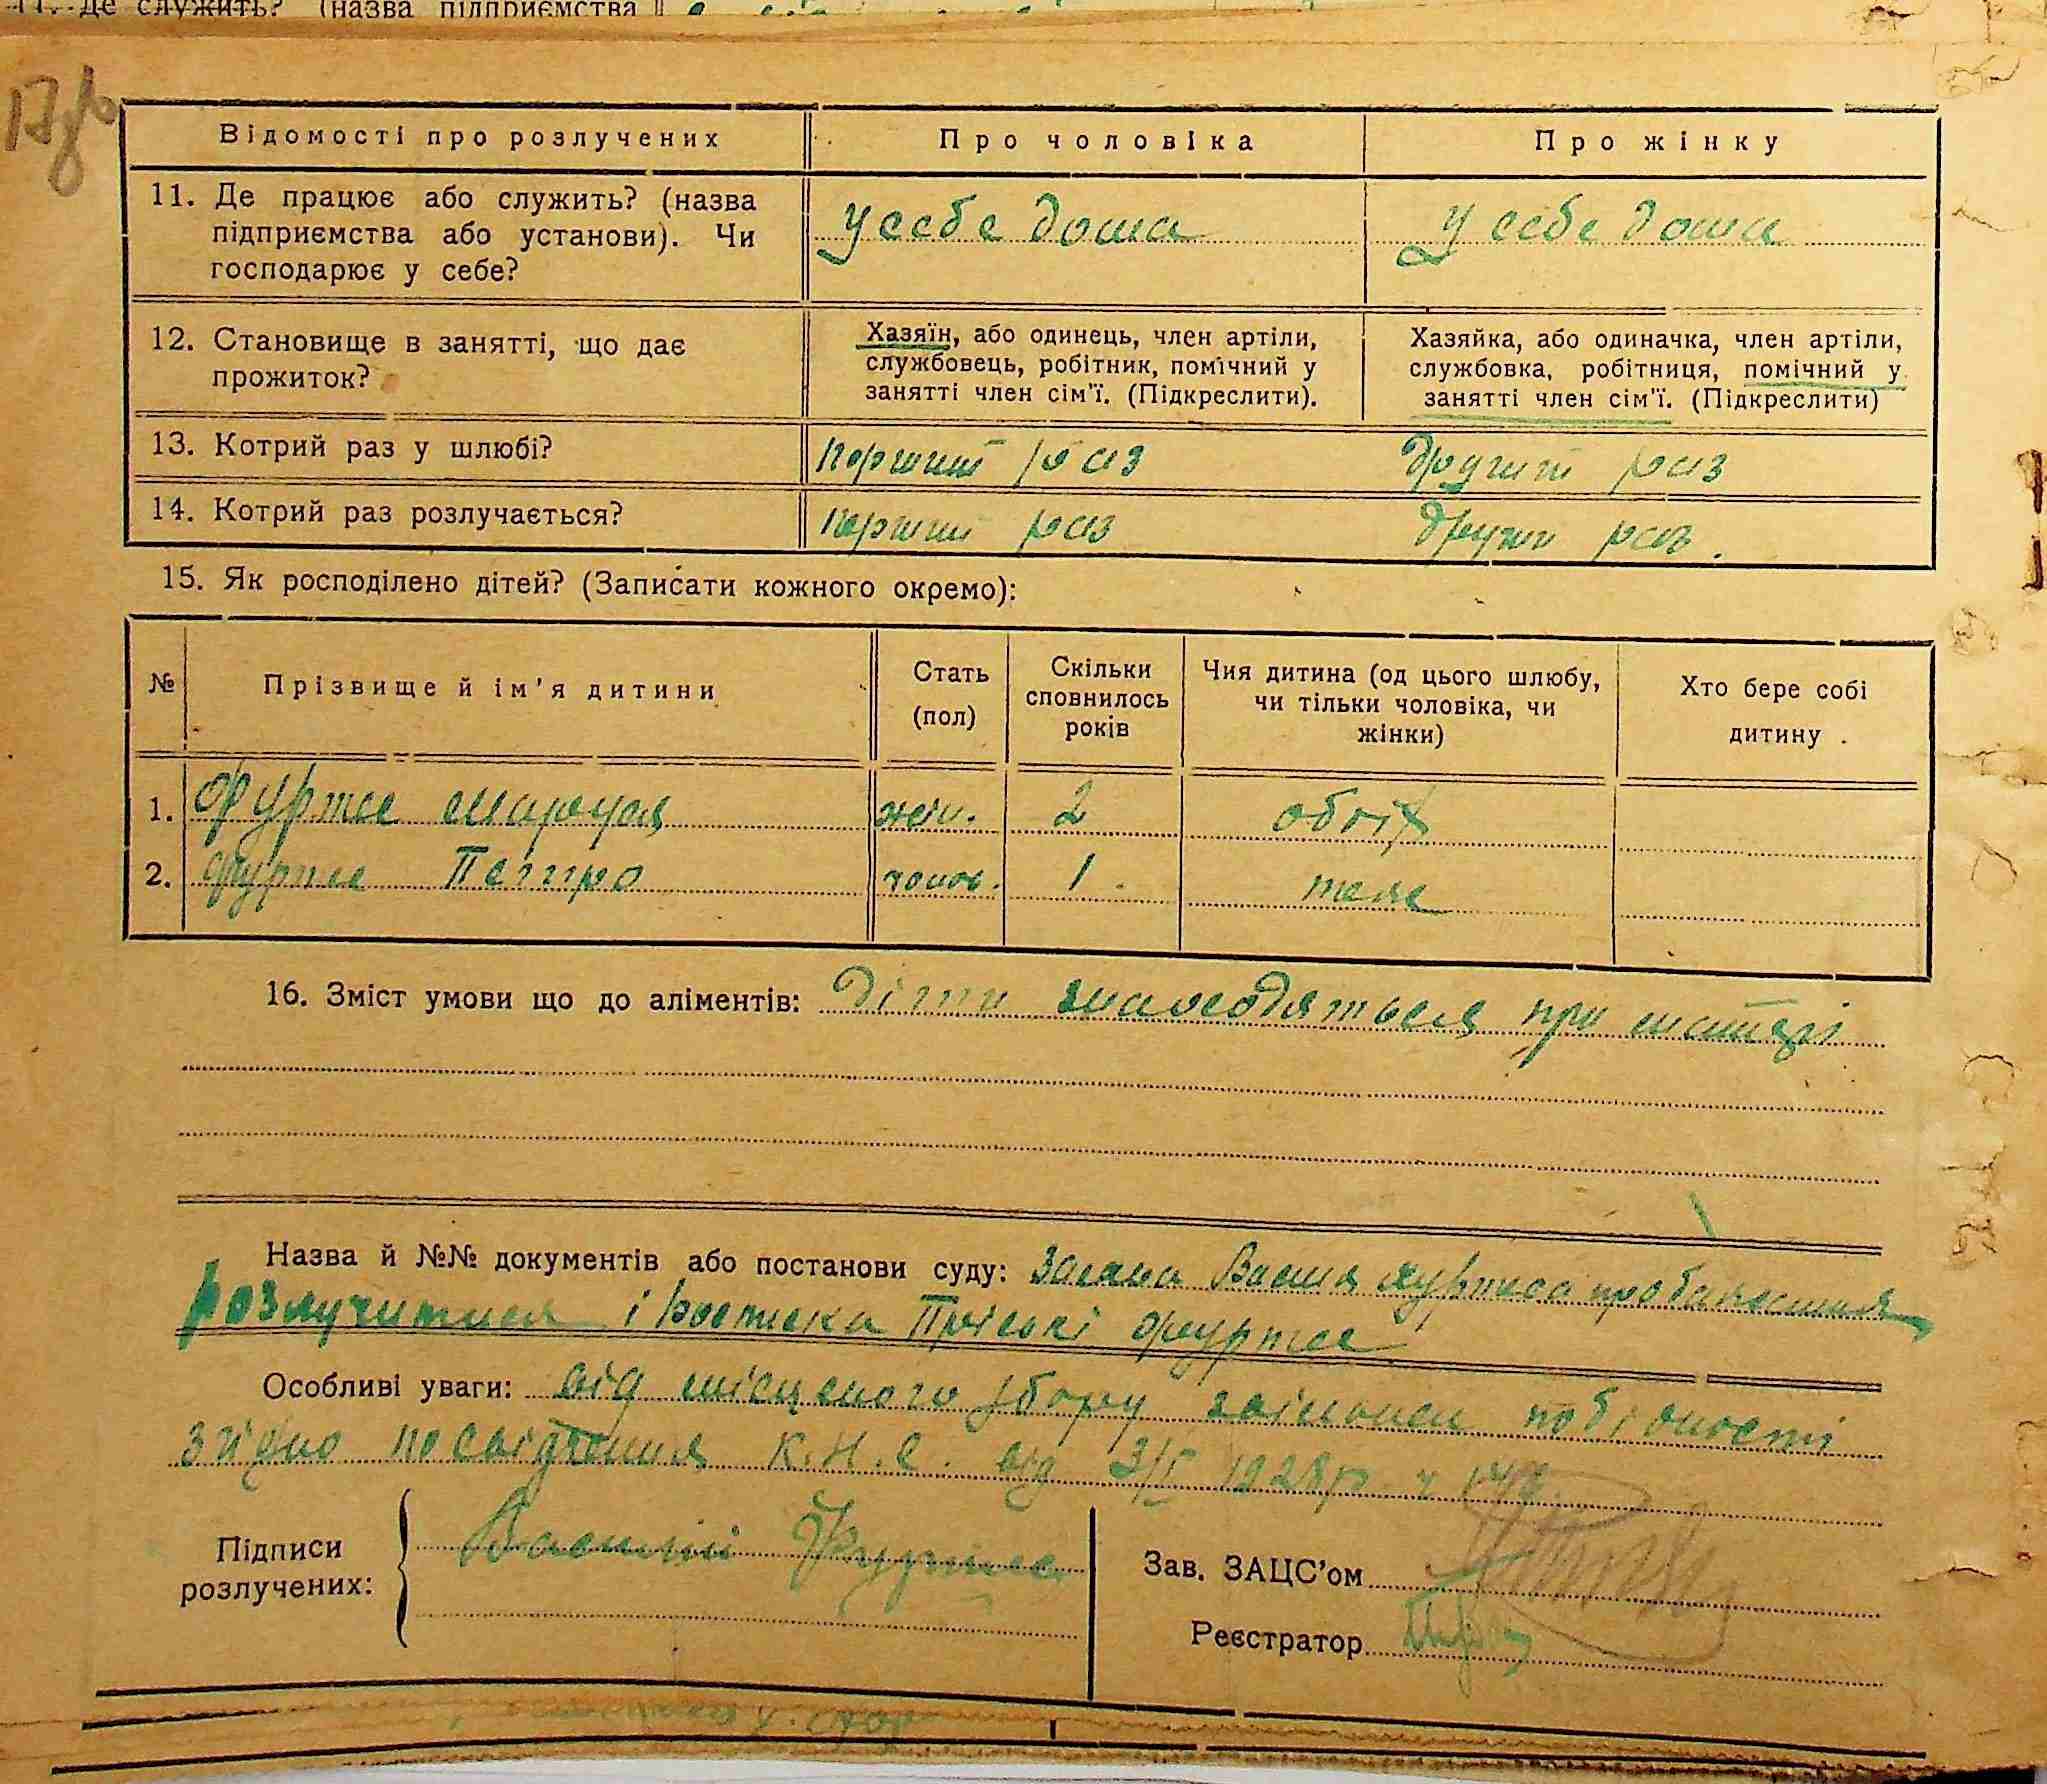 11. Де служить? (назва підприємства
Відомості про розлучених
Про чоловіка
Про жінку
11. Де працює або служить? (назва
підприємства або установи). Чи
господарює у себе?
у себе дома
у себе дома
12. Становище в занятті, що дає
прожиток?
Хазяїн, або одинець, член артіли,
службовець, робітник, помічний у
занятті член сім'ї. (Підкреслити).
Хазяйка, або одиначка, член артіли,
службовка, робітниця, помічний у
занятті член сім'ї. (Підкреслити)
13. Котрий раз у шлюбі?
перший раз
другий раз
14. Котрий раз розлучається?
перший раз
други раз.
15. Як росподілено дітей? (Записати кожного окремо):
№
Прізвище й ім'я дитини
Стать
(пол)
Скільки
сповнилось
років
Чия дитина (од цього шлюбу,
чи тільки чоловіка, чи
жінки)
Хто бере собі
дитину
1. Фурже Маруся
жін.
2
обоїх
2. Фурже Петро
чолов.
1
теже
16. Зміст умови що до аліментів: Діти знаходяться при матері
Назва й №№ документів або постанови суду: Заява Василя Фуржеа про бажання
розлучитися і Приські Фурже
Особливі уваги: від місцевого збору звільнен по бідности
згідно посвідчення К.Н.С. від 3/I 1928 р ч
Підписи
розлучених:
Василий Фурже
Зав. ЗАЦС'ом
Реєстратор